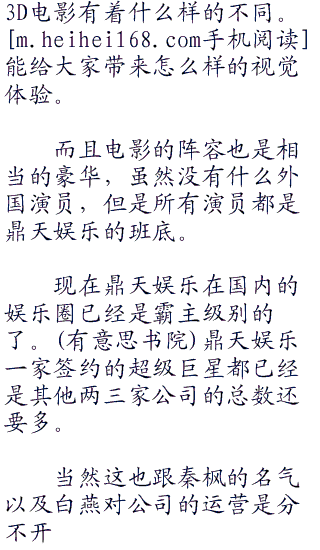 3D电影有着什么样的不同。
[m.heihei168.com手机阅读]
能给大家带来怎么样的视觉
体验。
而且电影的阵容也是相
当的豪华，虽然没有什么外
国演员，但是所有演员都是
鼎天娱乐的班底。
现在鼎天娱乐在国内的
娱乐圈已经是霸主级别的
了。(有意思书院)鼎天娱乐
一家签约的超级巨星都已经
是其他两三家公司的总数还
要多。
当然这也跟秦枫的名气
以及白燕对公司的运营是分
不开